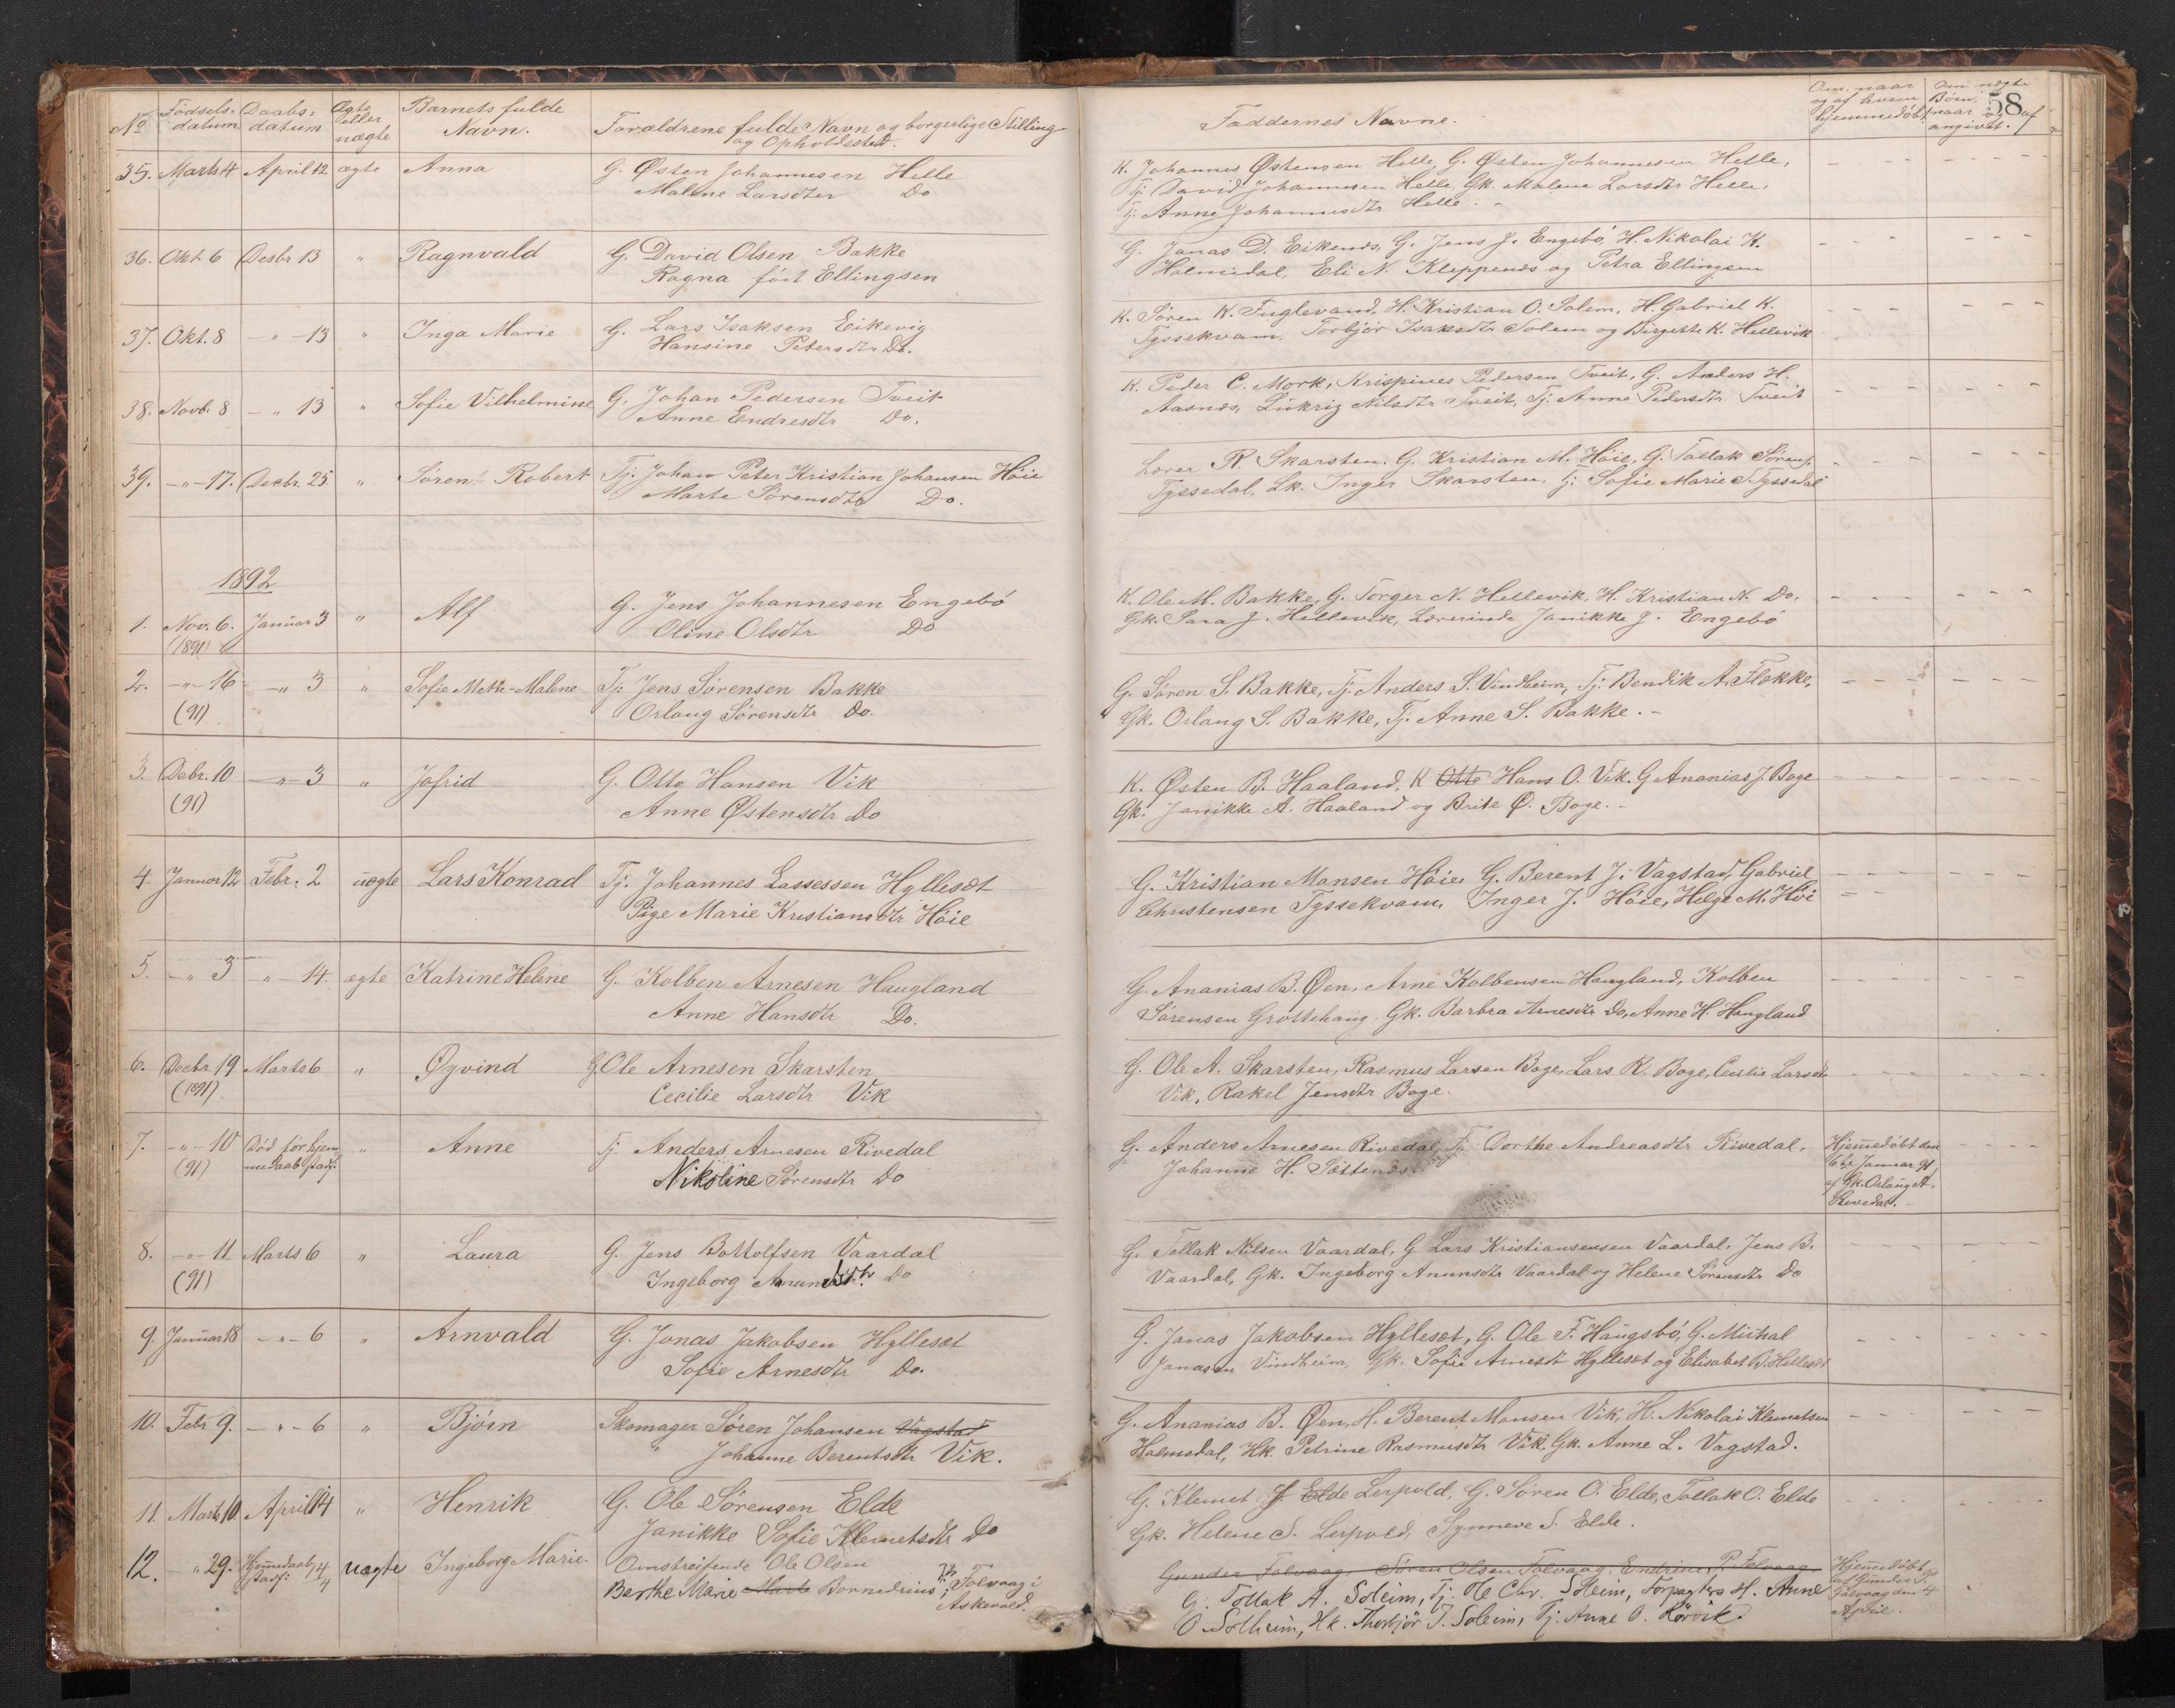 No Fødsels-datum Daabs-datum Ægte eller uægte Barnets fulde Navn. Forældrene fulde Navn og borgerlige Stilling og Opholdssted. Faddernes Navne. Om, naar og af hvem hjemmedøbt. Om uægte Børn: naar og af angivet. 58
35. Marts 4 April 12 ægte Anna G. Østen Johannesen Helle K. Johannes Østensen Helle, G. Østen Johannesen Helle,
Malene Larsdter Do Tj. David Johannesen Helle, Gk. Malene Larsdtr Helle,
Tj. Anne Johannesdtr Helle. -
36. Okt. 6 Decbr 13 " Ragnvald G. David Olsen Bakke G. Jonas D. Eikenes, G. Jens J. Engebø, H. Nikolai K.
Ragna født Ellingsen Holmedal, Eli N. Kleppenes og Petra Ellingsen
37. Okt. 8 - " - 13 " Inga Marie G. Lars Isaksen Eikevig K. Søren K. Fuglevand, H. Kristian O. Solem, H. Gabriel K.
Hansine Petersdtr Do. Tyssekvam, Torbjør Isaksdtr Solem og Birgitte K. Hellevik
38. Novb. 8 - " 13 " Sofie Vilhelmine G. Johan Pedersen Tveit K. Peder C. Mork, Krispines Pedersen Tveit, G. Anders H.
Anne Endresdtr Do. Aasnes, Lukrig Nilsdtr Tveit, Tj. Anne Pedersdtr Tveit
39. - " - 17. Decbr. 25. " Søren Robert Tj. Johan Peter Kristian Johansen Høie Lærer R. Skarsten. G. Kristian M. Høie, G. Tollak Sørens.
Marte Sørensdtr Do. Tyssedal, Lk. Inger Skarsten, Tj. Sofie Marie T. Tyssedal
1892
1. Nov. 6. Januar 3 " Alf G. Jens Johannesen Engebø K. Ole M. Bakke, G. Torger N. Hellevik, H. Kristian N. Do.
(1891) Oline Olsdtr Do Gk. Sara J. Hellevik, Lærerinde Janikke J. Engebø
2. - " - 16 - " 3 " Sofie Mette-Malene Tj. Jens Sørensen Bakke G. Søren S. Bakke, Tj. Anders S. Vindheim, Tj. Bendik A. Flokke,
(91) Orlaug Sørensdtr Do. Gk. Orlaug S. Bakke, Tj. Anne S. Bakke. -
3. Debr. 10 - " - 3 " Jofrid G. Otto Hansen Vik K. Østen B. Haaland, K Otto Hans O. Vik. G. Ananias J. Boge
(91) Anne Østensdtr Do Gk. Janikke A. Haaland og Brite Ø. Boge. -
4. Januar 12 Febr. 2 uægte Lars Konrad Tj. Johannes Lassessen Hyllesæt G. Kristian Monsen Høie, G. Berent J. Vagstad, Gabriel
Pige Marie Kristiansdtr Høie Christensen Tyssekvam, Inger J. Høie, Helge M. Høi
5. - " 3 " - 14. ægte Katrine Helene G. Kolben Arnesen Haugland G. Ananias B. Øen, Arne Kolbensen Haugland, Kolben
Anne Hansdtr Do. Sørensen Grottehaug. Gk. Barbra Arnesdtr Do, Anne H. Haugland
6. Decbr 19 Marts 6 " Øyvind G Ole Arnesen Skarsten G. Ole A. Skarsten, Rasmus Larsen Boge, Lars R. Boge, Cecilie Larsdtr
(1891) Cecilie Larsdtr Vik Vik, Rakel Jensdtr Boge.
7. - " - 10 Død før hjem- " Anne Tj Anders Arnesen Rivedal G. Anders Arnesen Rivedal, Tj. Dorthe Andreasdtr Rivedal, Hjemmedøbt den
(91) medaab stadf: Nikoline Sørensdtr Do Johanne H. Sættenes. 6te Januar 91
af Gk. Orlaug A.
Rivedal.
8. - " - 11 Marts 6 " Laura G. Jens Bottolfsen Vaardal G. Tollak Nilsen Vaardal, G Lars Kristiansensen Vaardal, Jens B.
(91) Ingeborg Anundsdtr. Do Vaardal, Gk. Ingeborg Anunsdtr Vaardal og Helene Sørensdtr Do
9. Januar 18 - " - 6 " Arnvald G. Jonas Jakobsen Hyllesæt G. Jonas Jakobsen Hyllesæt, G. Ole F. Haugsbø, G. Michal
Sofie Arnesdtr Do. Jonasen Vindheim, Gk. Sofie Arnesdt Hyllesæt og Elisabet B. Hellesæt
10. Febr 9. - " - 6 " Bjørn Skomager Søren Johansen Vagstad G. Ananias B. Øen, H. Berent Monsen Vik, H. Nikolai Klemetsen
" Johanne Berentsdtr Vik. Holmedal, Hk. Petrine Rasmusdtr Vik. Gk. Anne L. Vagstad.
11. Marts 10. April 14 " Henrik G. Ole Sørensen Elde G. Klemet J. Elde Lerpold, G. Søren O. Elde, Tollak O. Elde
Janikke Sofie Klemetsdtr Do Gk. Helene S. Lerpold, Synneve S. Elde.
12. - " 29. Hjemmedaab stadf: 14/4 uægte Ingeborg Marie. Omstreifende Ole Olsen Gunder Folvaag, Søren Olsen Folvaag, Endrine P. Folvaag Hjemmedøbt
Berthe Marie Marte Bornedrius Folvaag i Askevold. G. Tollak A. Soleim, Tj: Ole Chr. Soleim, Forpagters H. Anne af Gunder P. Folvaag den 4
O. Solheim, Hk. Thorbjør T. Soleim, Tj. Anne O. Rørvik. April.